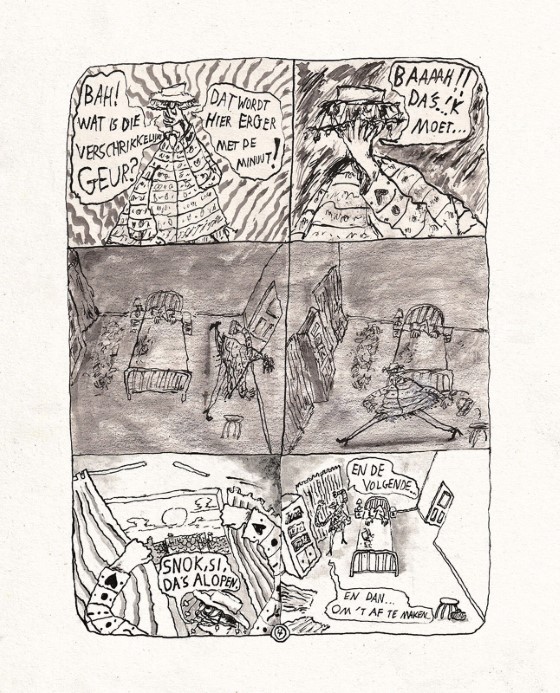 BAH!
WAT IS DIE
VERSCHRIKKELIJKE
GEUR?
DAT WORDT
HIER ERGER
MET DE
MINUUT!
BAAAAH!!
DA'S..'K
MOET...
SNOK, SI,
DA'S ALOPEN.
EN DE
VOLGENDE...
EN DAN...
OM 'T AF TE MAKEN...